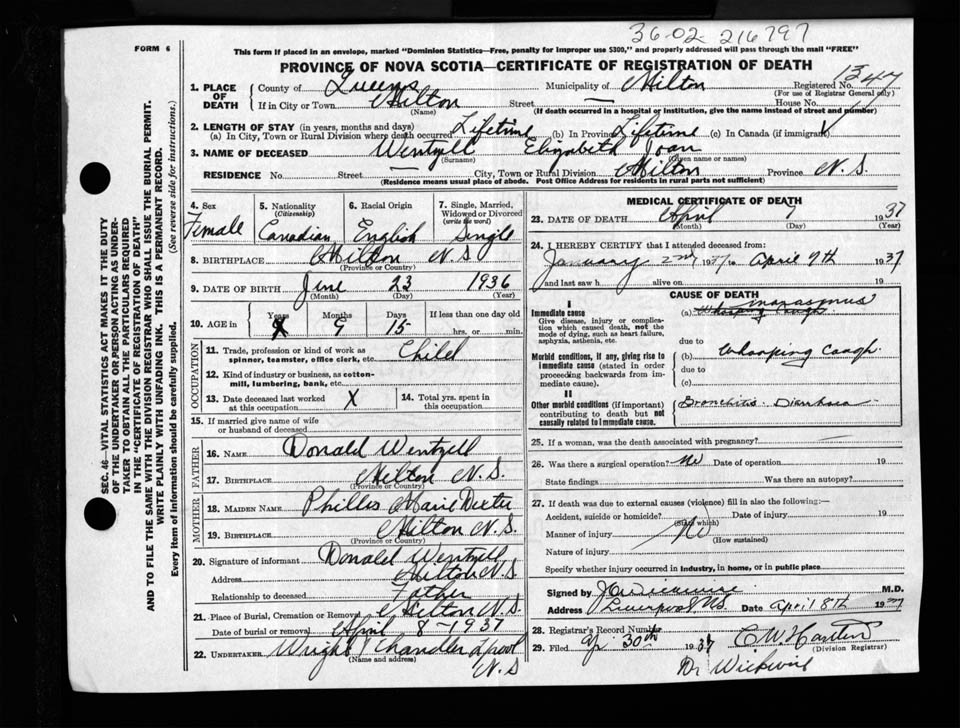 36-02-216797
FORM 6
This form if placed in an envelope, marked "Dominion Statistics—Free, penalty for improper use $300," and properly addressed will pass through the mail "FREE"
PROVINCE OF NOVA SCOTIA—CERTIFICATE OF REGISTRATION OF DEATH
1. PLACE OF DEATH County of Queens Municipality of Milton Registered No. 1347
(For use of Registrar General only)
If in City or Town Milton Street — House No.
(Name) (If death occurred in a hospital or institution, give the name instead of street and number)
2. LENGTH OF STAY (in years, months and days)
(a) In City, Town or Rural Division where death occurred Lifetime (b) In Province Lifetime (c) In Canada (if immigrant)
3. NAME OF DECEASED Wentzell Elizabeth Joan
(Surname) (Given name or names)
RESIDENCE No. Street — City, Town or Rural Division Milton Province N.S.
(Residence means usual place of abode. Post Office Address for residents in rural parts not sufficient)
4. Sex Female
5. Nationality (Citizenship) Canadian
6. Racial Origin English
7. Single, Married, Widowed or Divorced (write the word) Single
8. BIRTHPLACE Milton N S
(Province or Country)
9. DATE OF BIRTH June 23 1936
(Month) (Day) (Year)
10. AGE in Years X Months 9 Days 15 If less than one day old
hrs. or min.
OCCUPATION
11. Trade, profession or kind of work as spinner, teamster, office clerk, etc. Child
12. Kind of industry or business, as cotton-mill, lumbering, bank, etc.
13. Date deceased last worked at this occupation X
14. Total yrs. spent in this occupation
15. If married give name of wife or husband of deceased
FATHER
16. NAME Donald Wentzell
17. BIRTHPLACE Milton N.S.
(Province or Country)
MOTHER
18. MAIDEN NAME Phillis Marie Dexter
19. BIRTHPLACE Milton N.S.
(Province or Country)
20. Signature of informant Donald Wentzell
Address Milton N.S
Relationship to deceased Father
21. Place of Burial, Cremation or Removal Milton N.S.
Date of burial or removal April 8-1937
22. UNDERTAKER Wright Chandler Lpool
(Name and address) N.S
MEDICAL CERTIFICATE OF DEATH
23. DATE OF DEATH April 7 1937
(Month) (Day) (Year)
24. I HEREBY CERTIFY that I attended deceased from:
January 2nd 1937 to April 7th 1937
and last saw h alive on 19
CAUSE OF DEATH
I
Immediate cause
Give disease, injury or complication which caused death, not the mode of dying, such as heart failure, asphyxia, asthenia, etc.
(a) Whooping Cough marasmus
due to
Morbid conditions, if any, giving rise to immediate cause (stated in order proceeding backwards from immediate cause).
(b) Whooping Cough
due to
(c)
II
Other morbid conditions (if important) contributing to death but not causally related to immediate cause.
Bronchitis - Diarrhoea
25. If a woman, was the death associated with pregnancy?
26. Was there a surgical operation? No Date of operation 19
State findings Was there an autopsy?
27. If death was due to external causes (violence) fill in also the following:—
Accident, suicide or homicide? Date of injury 19
(State which)
Manner of injury No
(How sustained)
Nature of injury
Specify whether injury occurred in industry, in home, or in public place
Signed by M.D.
Address Liverpool N.S. Date April 8th 1937
28. Registrar's Record Number
29. Filed Ap 30th 1937
(Division Registrar)
Dr Wickwire
SEC. 46—VITAL STATISTICS ACT MAKES IT THE DUTY
OF THE UNDERTAKER OR PERSON ACTING AS UNDER-
TAKER TO OBTAIN ALL THE PARTICULARS REQUIRED
IN THE "CERTIFICATE OF REGISTRATION OF DEATH"
AND TO FILE THE SAME WITH THE DIVISION REGISTRAR WHO SHALL ISSUE THE BURIAL PERMIT.
WRITE PLAINLY WITH UNFADING INK. THIS IS A PERMANENT RECORD.
Every item of information should be carefully supplied. (See reverse side for instructions.)